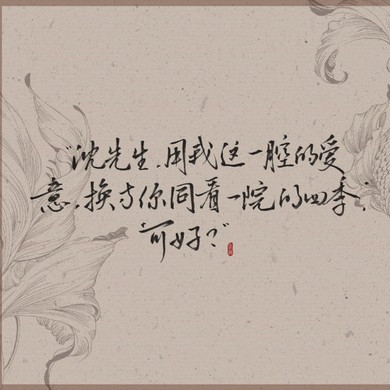 “沈先生，用我这一腔的爱
意，换与你同看一院的四季，
可好？”